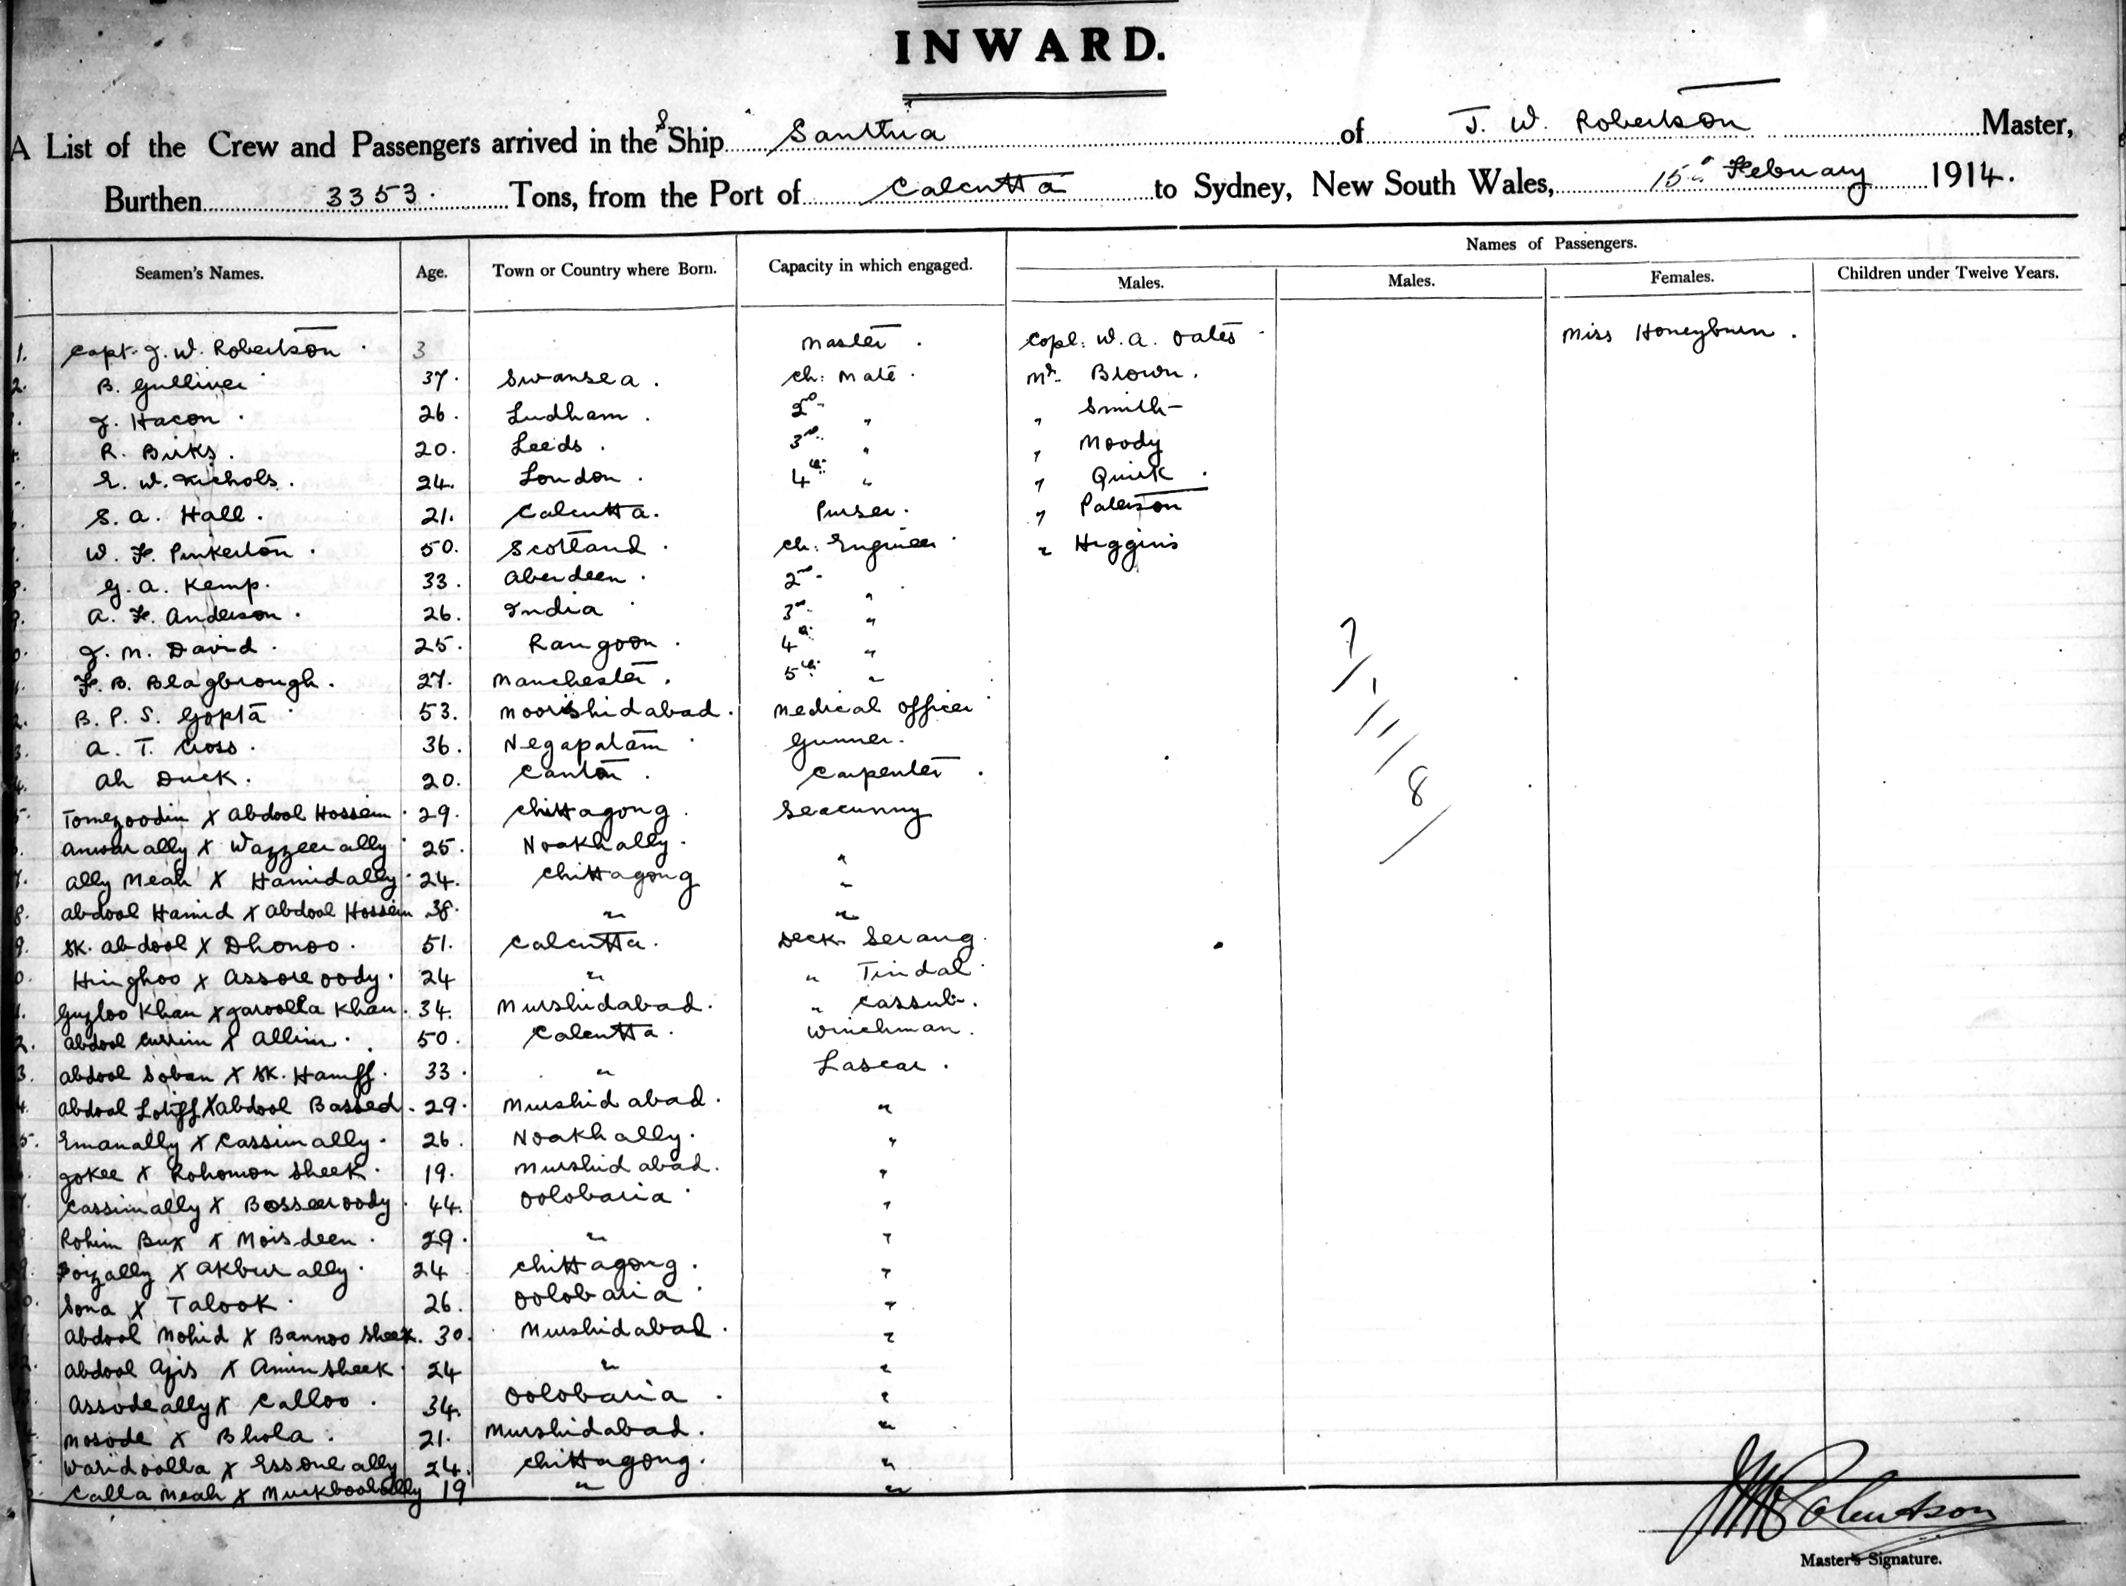 INWARD.
A List of the Crew and Passengers arrived in the S Ship Santhia of J. W. Robertson Master,
Burthen 3353. Tons, from the Port of Calcutta to Sydney, New South Wales, 15th February 1914.
Names of Passengers.
Seamen's Names. Age. Town or Country where Born. Capacity in which engaged. Males. Males. Females. Children under Twelve Years.
1. Capt. J. W. Robertson 3 Master. Capt: W. A. Oates Miss Honeyburn.
2. B. Gulliver 37. Swansea. Ch: Mate. Mr. Brown.
J. Hacon. 26. Ludham. 2nd " " Smith
R. Birks. 20. Leeds. 3rd " " Moody
E. W. Nichols. 24. London. 4th " " Quirk.
S. A. Hall. 21. Calcutta. Purser. " Paterson
W. F. Pinkerton. 50. Scotland. Ch: Engineer " Higgins
G. A. Kemp. 33. Aberdeen. 2nd "
9. A. F. Anderson. 26. India 3rd "
J. M. David. 25. Rangoon. 4th "
F. B. Blagbrough. 27. Manchester. 5th "
2. B. P. S. Gopta 53. Moorishidabad. Medical Officer
3. A. T. Cross. 36. Negapatam Gunner.
4. Ah Duck. 20. Canton. Carpenter.
5. Tomezoodin X Abdool Hossein 29. Chittagong. Seacunny
Anwar ally X Wazzeer ally 25. Noakhally. "
7. Ally Meah X Hamidally 24. Chittagong "
8. Abdool Hamid X Abdool Hossein 38. " "
9. Sk. Abdool X Dhonoo. 51. Calcutta. Deck Serang.
0. Hinghoo X Assoreoody. 24 " " Tindal
1. Guzloo Khan X Jaroolla Khan. 34. Murshidabad. " Cassub.
2. Abdool Currim X Allim. 50. Calcutta. Winchman.
3. Abdool Soban X Sk. Haniff. 33. " Lascar.
4. Abdool Lotiff X Abdool Bassed. 29. Murshidabad. "
5. Emanally X Cassimally. 26. Noakhally. "
Jokee X Rohomon Sheek. 19. Murshidabad. "
7. Cassimally X Bosseeroody. 44. Oolobaria "
Rohim Bux X Moisdeen. 29. " "
Foizally X Akbur ally. 24 Chittagong. "
Sona X Talook. 26. Oolobaria "
Abdool Mohid X Bannoo Sheek. 30. Murshidabad. "
Abdool Ajis X Amin Sheek 24 " "
Assode ally X Calloo. 34. Oolobaria. "
Mosode X Bhola. 21. Murshidabad. "
Waridoolla X Essone ally 24. Chittagong. "
Calla Meah X Muckboolally 19 " "
7/1/11/8/
JWRobertson
Master's Signature.